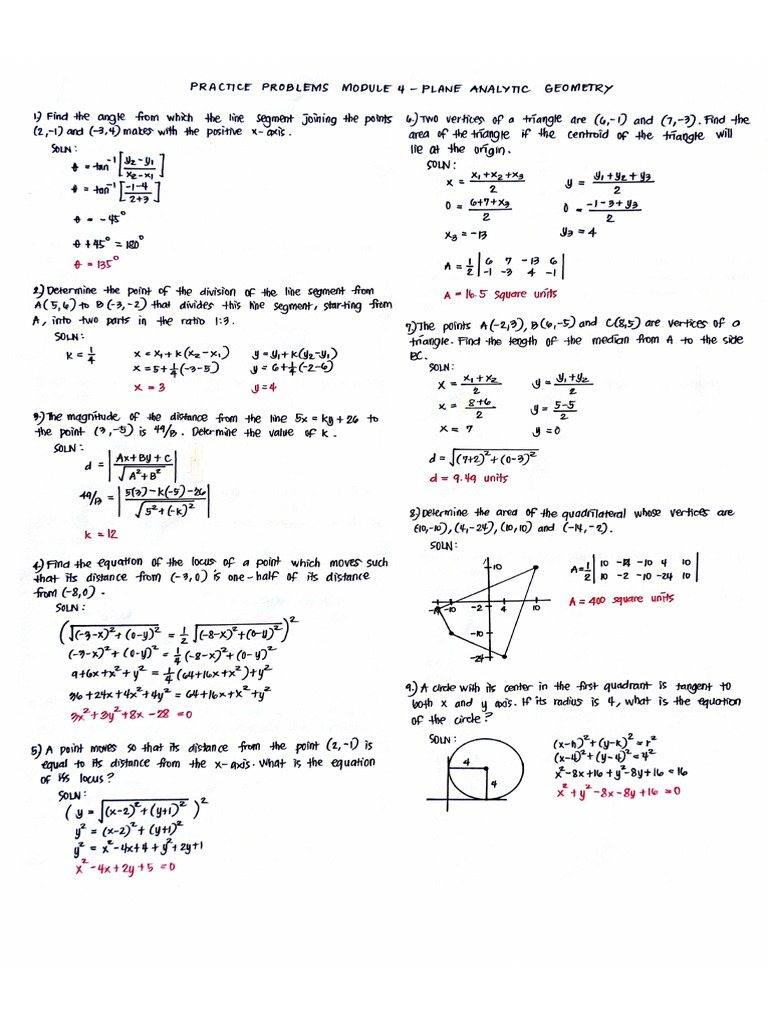 PRACTICE PROBLEMS MODULE 4 - PLANE ANALYTIC GEOMETRY
1) Find the angle from which the line segment joining the points
(2,-1) and (-3,4) makes with the positive x-axis.
SOLN:
θ = tan⁻¹ [(y₂-y₁)/(x₂-x₁)]
θ = tan⁻¹ [(-1-4)/(2+3)]
θ = -45°
θ + 45° = 180°
θ = 135°
2.) Determine the point of the division of the line segment from
A(5,6) to B(-3,-2) that divides this line segment, starting from
A, into two parts in the ratio 1:3.
SOLN:
k = 1/4 x = x₁+k(x₂-x₁) y = y₁+k(y₂-y₁)
x = 5+1/4(-3-5) y = 6+1/4(-2-6)
x = 3 y = 4
3.) The magnitude of the distance from the line 5x = ky + 26 to
the point (3,-5) is 49/13. Determine the value of k.
SOLN:
d = |(Ax+By+C)/√(A²+B²)|
49/13 = |(5(3)-k(-5)-26)/√(5²+(-k)²)|
k = 12
4.) Find the equation of the locus of a point which moves such
that its distance from (-3,0) is one-half of its distance
from (-8,0).
SOLN:
(√((-3-x)²+(0-y)²) = 1/2 √((-8-x)²+(0-y)²))²
(-3-x)²+(0-y)² = 1/4(-8-x)²+(0-y)²
9+6x+x²+y² = 1/4(64+16x+x²)+y²
36+24x+4x²+4y² = 64+16x+x²+y²
3x²+3y²+8x-28 = 0
5) A point moves so that its distance from the point (2,-1) is
equal to its distance from the x-axis. What is the equation
of its locus?
SOLN:
(y = √((x-2)²+(y+1)²))²
y² = (x-2)²+(y+1)²
y² = x²-4x+4+y²+2y+1
x²-4x+2y+5 = 0
6.) Two vertices of a triangle are (6,-1) and (7,-3). Find the
area of the triangle if the centroid of the triangle will
lie at the origin.
SOLN:
x = (x₁+x₂+x₃)/2 y = (y₁+y₂+y₃)/2
0 = (6+7+x₃)/2 0 = (-1-3+y₃)/2
x₃ = -13 y₃ = 4
A = 1/2 | 6 7 -13 6 |
| -1 -3 4 -1 |
A = 16.5 square units
7.) The points A(-2,3), B(6,-5) and C(8,5) are vertices of a
triangle. Find the length of the median from A to the side
BC.
SOLN:
x = (x₁+x₂)/2 y = (y₁+y₂)/2
x = (8+6)/2 y = (5-5)/2
x = 7 y = 0
d = √((7+2)²+(0-3)²)
d = 9.49 units
8.) Determine the area of the quadrilateral whose vertices are
(10,-10), (4,-24), (10,10) and (-14,-2).
SOLN:
10
-14 -10 -2 4 10
-10
-24
A = 1/2 | 10 -14 -10 4 10 |
| 10 -2 -10 -24 10 |
A = 400 square units
9.) A circle with its center in the first quadrant is tangent to
both x and y axis. If its radius is 4, what is the equation
of the circle?
SOLN:
4
4
(x-h)²+(y-k)² = r²
(x-4)²+(y-4)² = 4²
x²-8x+16+y²-8y+16 = 16
x²+y²-8x-8y+16 = 0